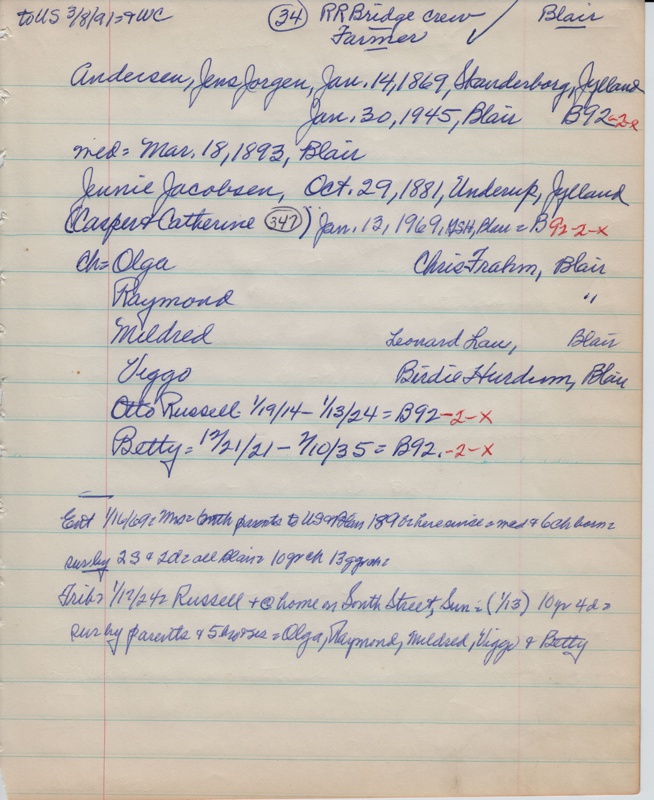 to US 3/8/91 = & WC (34) RR Bridge crew Blair
Farmer ✓
Andersen, Jens Jorgen, Jan. 14, 1869, Skanderborg, Jylland
Jan. 30, 1945, Blair B92-2-x
med = Mar. 18, 1893, Blair
Jennie Jacobsen, Oct. 29, 1881, Underup, Jylland
(Casper & Catherine (347)) Jan. 13, 1969, Blair = B92-2-x
ch = Olga Chris Frahm, Blair
Raymond "
Mildred Leonard Lau, Blair
Viggo Birdie Hurdum, Blair
Otto Russell = 1/19/14 - 1/13/24 = B92-2-x
Betty = 12/21/21 - 7/10/35 = B92.-2-x
Ent 1/16/69 = Mrs = parents to US & Blair 189 here since = med & 6 ch born =
surby 2S & 2d = all Blair = 10 gr ch 13 ggrch =
Trib = 1/17/24 = Russell + @ home on South Street, Sun = (1/13) 10 yr 4 d =
surby parents & 5 = Olga, Raymond, Mildred, Viggo & Betty